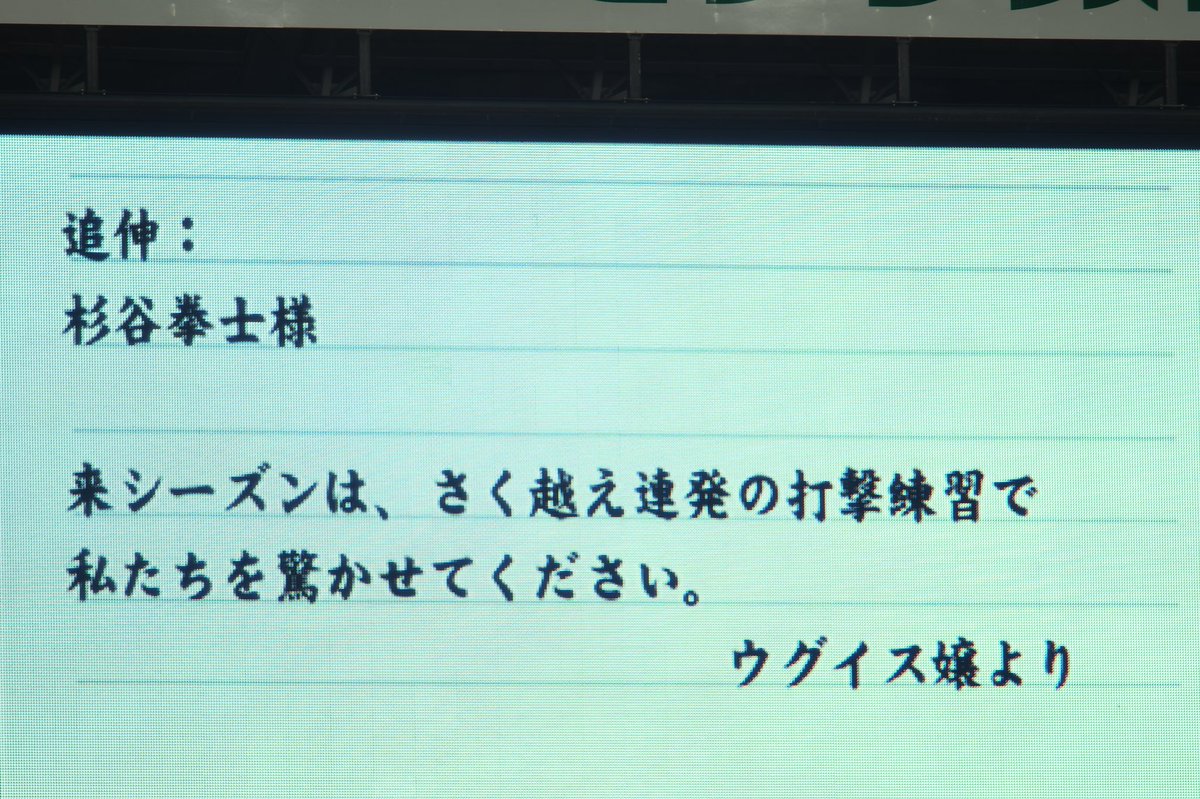 追伸：
杉谷拳士様
来シーズンは、さく越え連発の打撃練習で
私たちを驚かせてください。
ウグイス嬢より